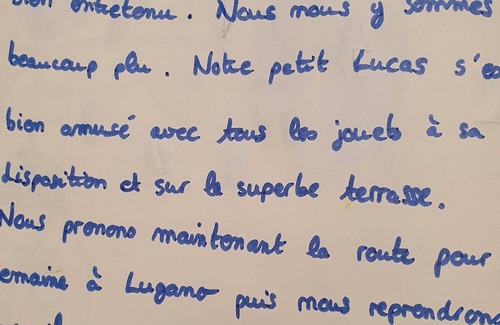 bien entretenu. Nous nous y sommes
beaucoup plu. Notre petit Lucas s'es
bien amusé avec tous les jouets à sa
disposition et sur la superbe terrasse.
Nous prenons maintenant la route pour
emaine à Lugano puis nous reprendrons